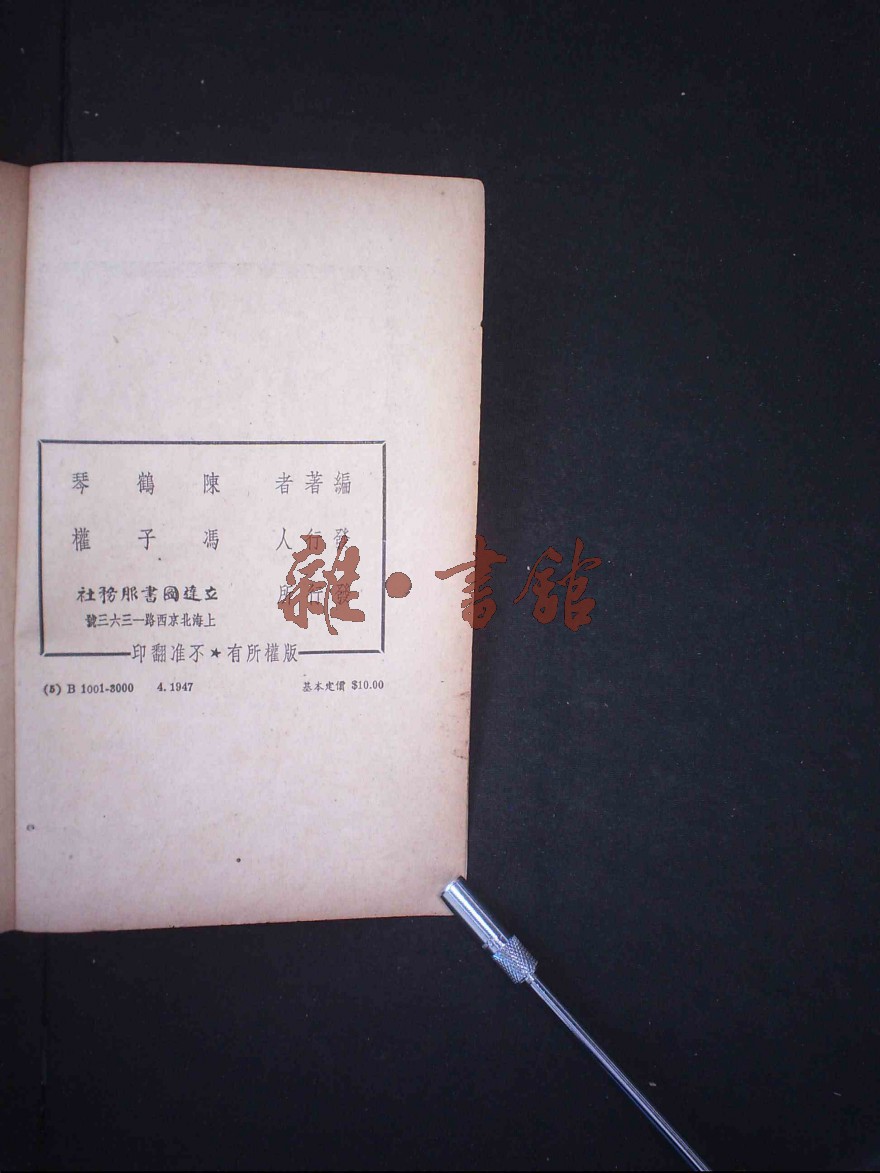 編著者 陳鶴琴
發行人 馮子權
發行所 立達圖書服務社
上海北京西路一三六三號
版權所有★不准翻印
(5) B 1001-3000 4.1947 基本定價 $10.00
雜·書館